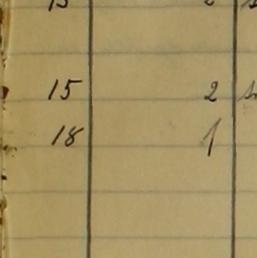 15 2
18 1